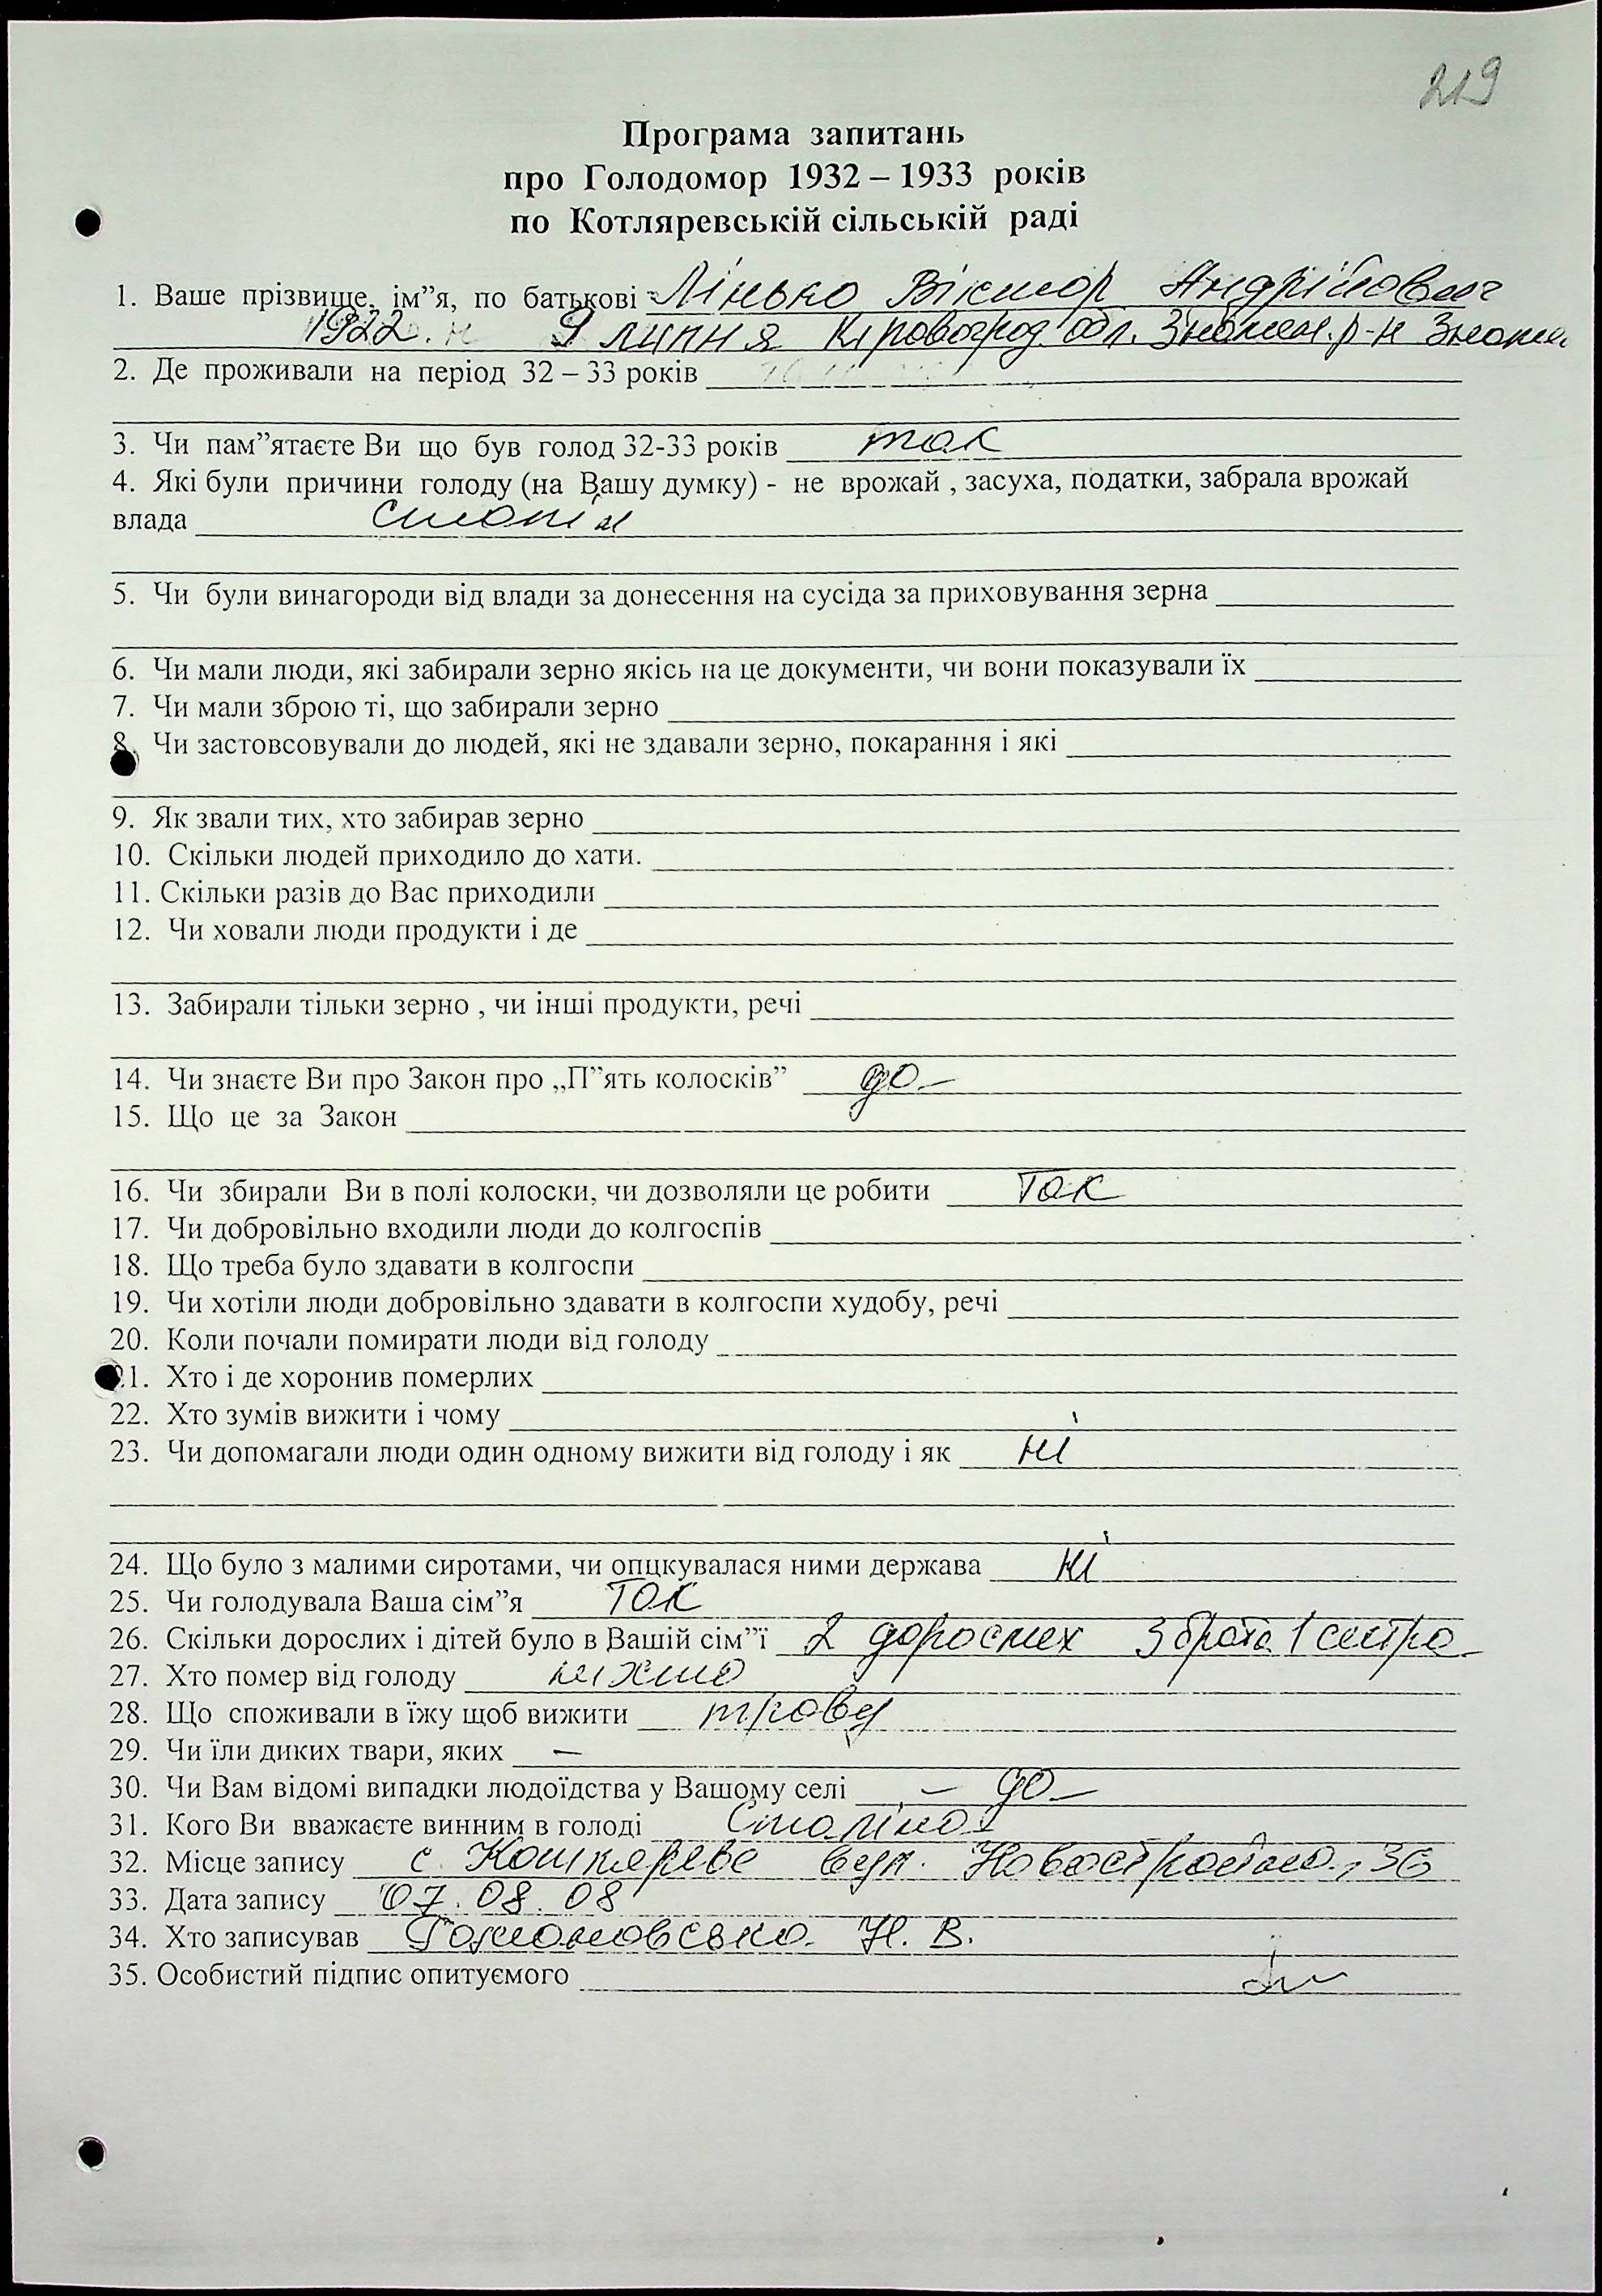 219
Програма запитань
про Голодомор 1932 – 1933 років
по Котляревській сільській раді
1. Ваше прізвище, ім”я, по батькові Лінько Віктор Андрійович
1922. н 9 липня Кіровоград. обл. Знамен. р-н Знам
2. Де проживали на період 32 – 33 років
3. Чи пам”ятаєте Ви що був голод 32-33 років так
4. Які були причини голоду (на Вашу думку) - не врожай , засуха, податки, забрала врожай
влада Сталін
5. Чи були винагороди від влади за донесення на сусіда за приховування зерна
6. Чи мали люди, які забирали зерно якісь на це документи, чи вони показували їх
7. Чи мали зброю ті, що забирали зерно
8. Чи застовсовували до людей, які не здавали зерно, покарання і які
9. Як звали тих, хто забирав зерно
10. Скільки людей приходило до хати.
11. Скільки разів до Вас приходили
12. Чи ховали люди продукти і де
13. Забирали тільки зерно , чи інші продукти, речі
14. Чи знаєте Ви про Закон про „П”ять колосків” да –
15. Що це за Закон
16. Чи збирали Ви в полі колоски, чи дозволяли це робити Так
17. Чи добровільно входили люди до колгоспів
18. Що треба було здавати в колгоспи
19. Чи хотіли люди добровільно здавати в колгоспи худобу, речі
20. Коли почали помирати люди від голоду
21. Хто і де хоронив померлих
22. Хто зумів вижити і чому
23. Чи допомагали люди один одному вижити від голоду і як ні
24. Що було з малими сиротами, чи опцкувалася ними держава ні
25. Чи голодувала Ваша сім”я Так
26. Скільки дорослих і дітей було в Вашій сім”ї 2 дорослих 3 брата 1 сестра
27. Хто помер від голоду ніхто
28. Що споживали в їжу щоб вижити траву
29. Чи їли диких твари, яких –
30. Чи Вам відомі випадки людоїдства у Вашому селі – да –
31. Кого Ви вважаєте винним в голоді Сталіна
32. Місце запису с. Котляреве вул. 36
33. Дата запису 07. 08. 08
34. Хто записував Н. В.
35. Особистий підпис опитуємого